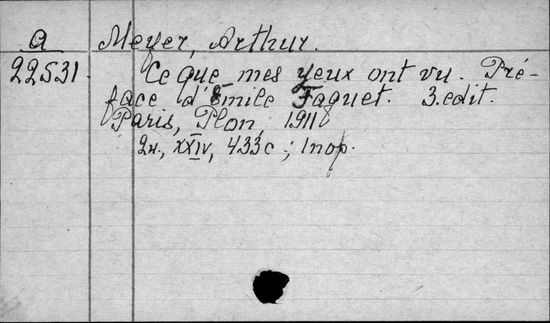 a Meyer, Arthur.
22531. Ce que mes yeux ont vu. Pré-
face d'Emile Faguet. 3. edit.
Paris, Plon, 1911
2н., XXIV, 433 с; 1 пор.